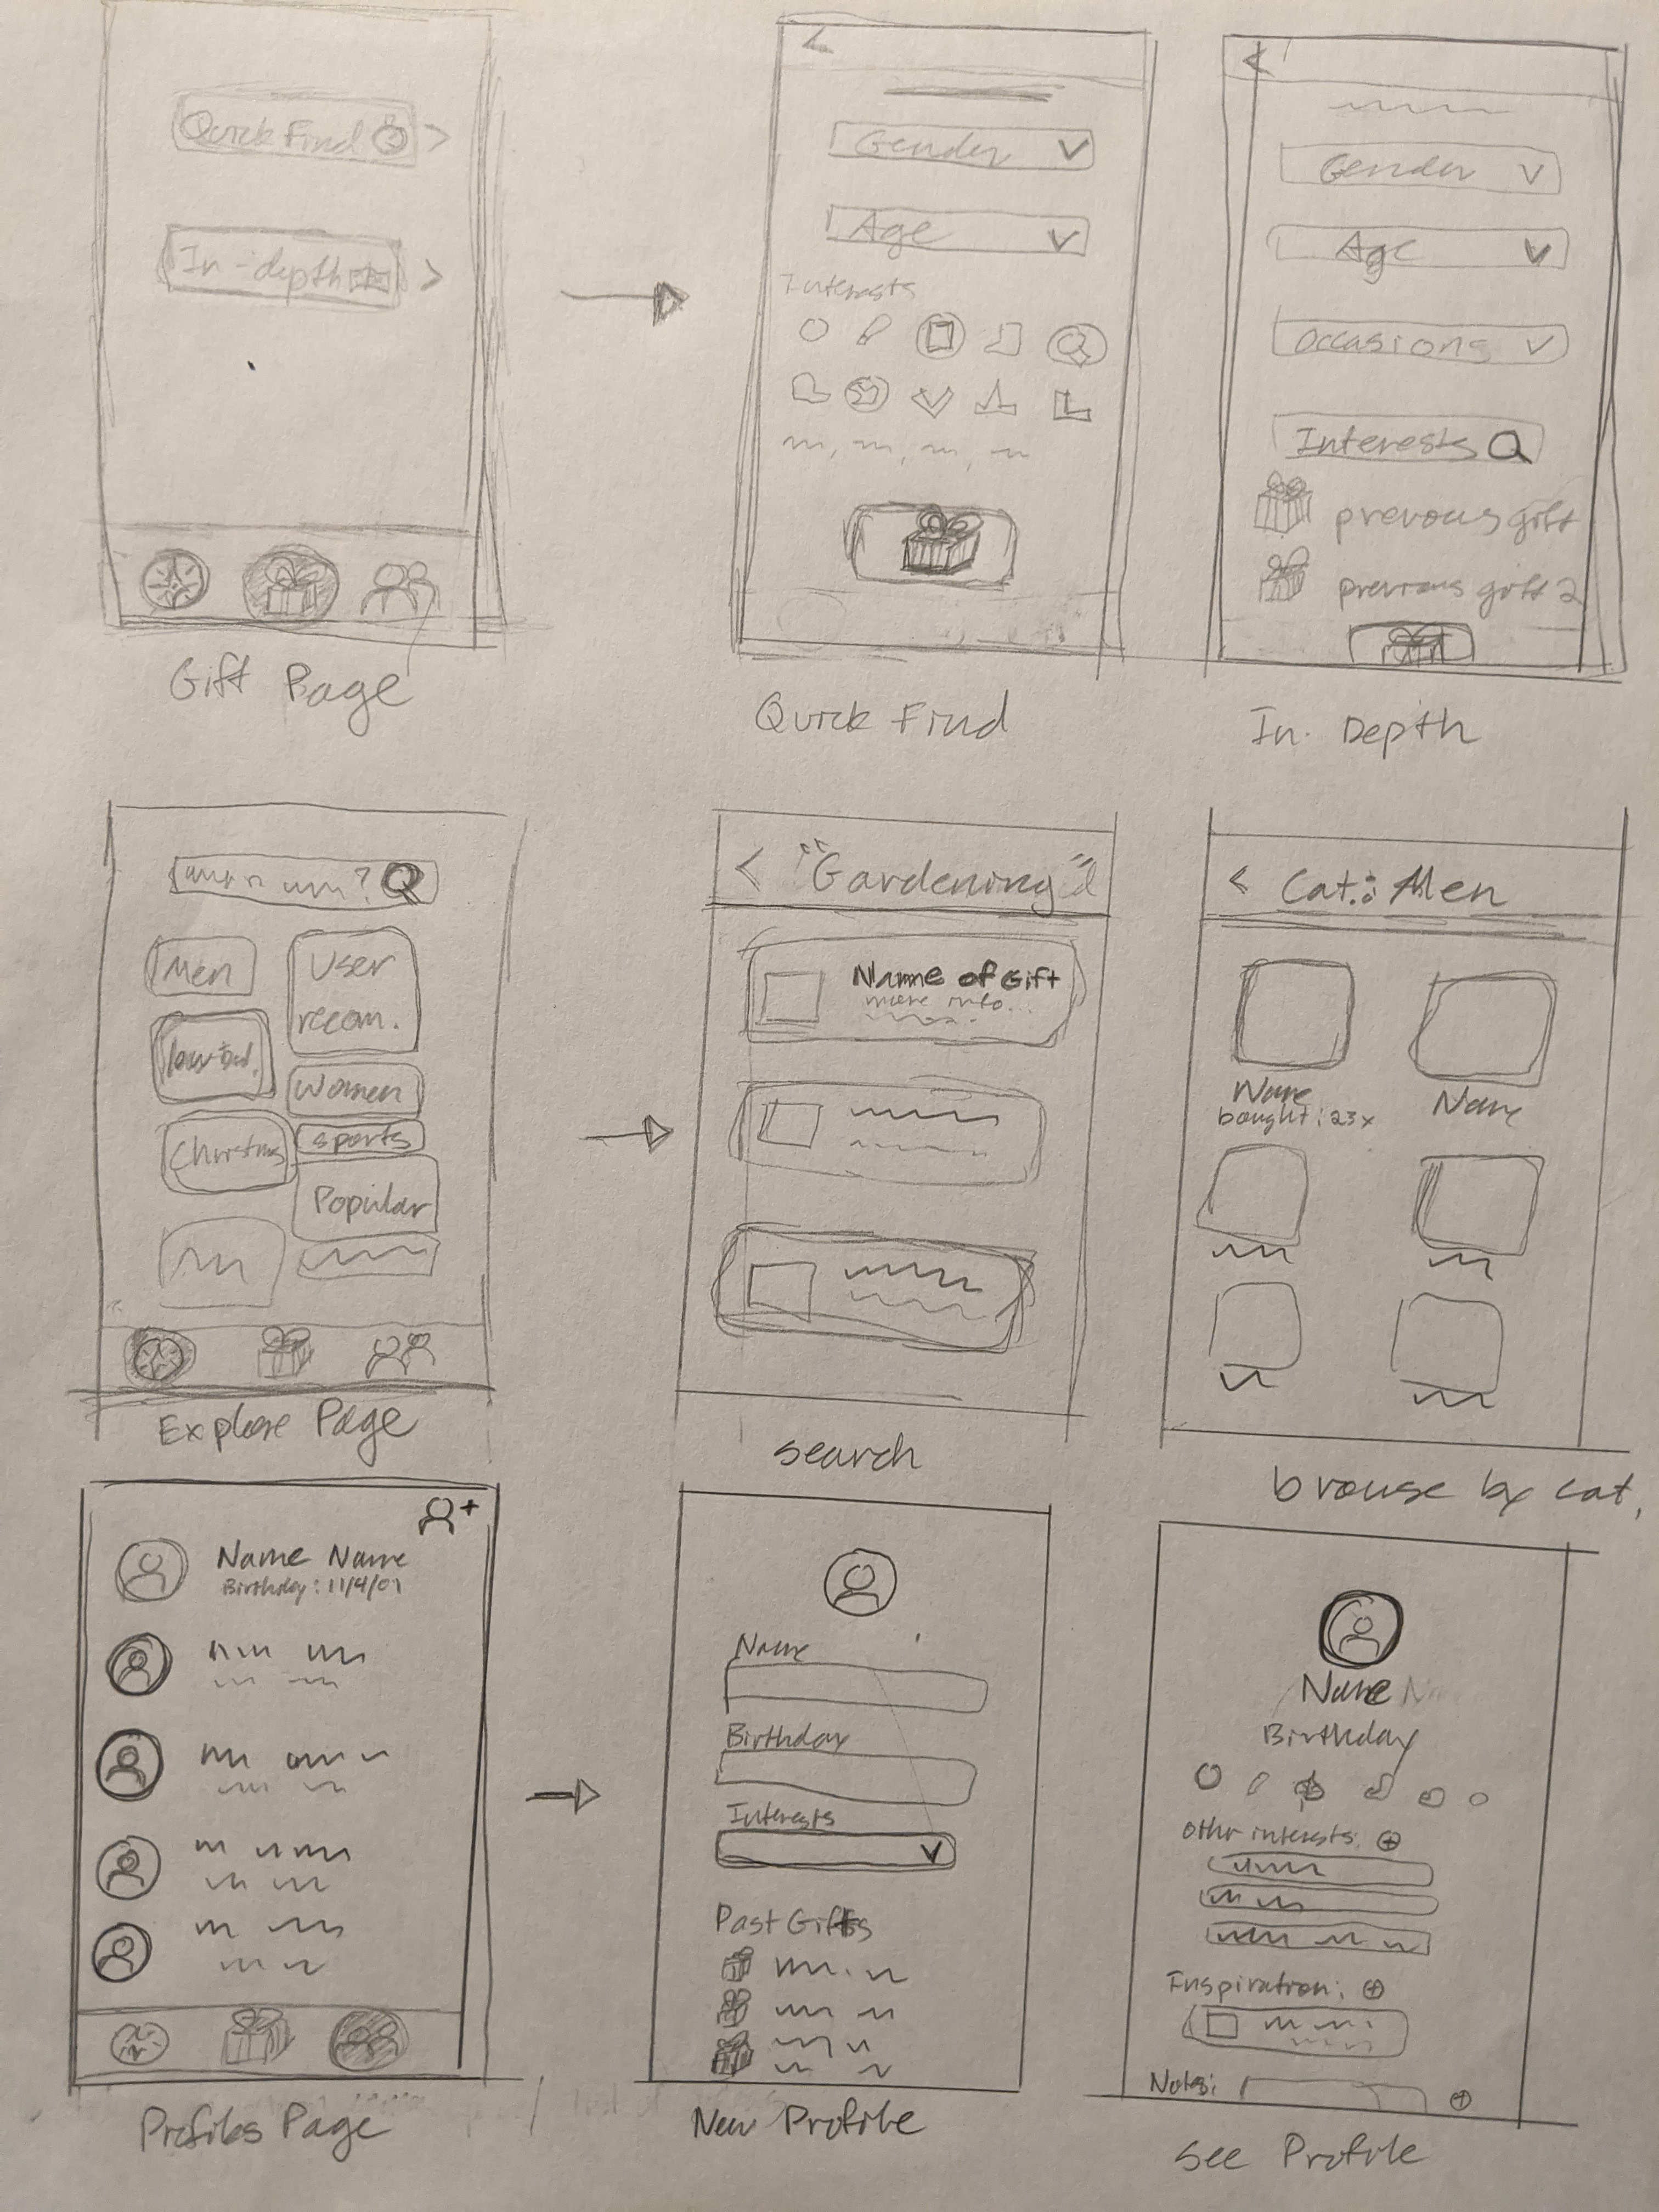 Quick Find
In-depth
Gift Page
Gender
Age
Interests
Quick Find
Gender
Age
occasions
Interests
prevous gift
previous gift 2
In. Depth
?
Men
User
recom.
low-bud.
Women
Christmas
sports
Popular
Explore Page
< "Gardening"
Name of Gift
more info...
search
< Cat.: Men
Name
bought: 23x
Name
browse by cat.
Name Name
Birthday: 11/4/01
Profiles Page
Name
Birthday
Interests
Past Gifts
New Profile
Name
Birthday
Othr interests:
Inspiration:
Notes:
See Profile